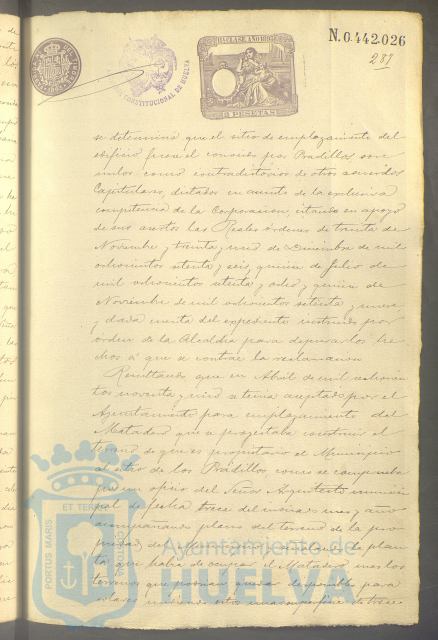 N.0.442.026
287
CONSTITUCIONAL DE HUELVA
2 PESETAS
se determina que el sitio de emplazamiento del
edificio fuera el conocido por Pradillos son
nulos como contradictorios de otros acuerdos
Capitulares, dictados en asunto de la exclusiva
competencia de la Corporacion, citando en apoyo
de sus asertos las Reales órdenes de treinta de
Noviembre y treinta y uno de Diciembre de mil
ochocientos setenta y seis, quince de Julio de
mil ochocientos setenta y ocho y quince de
Noviembre de mil ochocientos setenta y nueve
y dada cuenta del expediente instruido por
orden de la Alcaldia para depurar los he
chos á que se contrae la reclamacion
Resultando que en Abril de mil ochocien
tos noventa y uno se tenia aceptado por el
Ayuntamiento para emplazamiento del
Matadero que se proyectaba construir el
terreno de que es propietario el Municipio
al sitio de los Pradillos como se comprueba
por un oficio del Señor Arquitecto munici
pal de fecha trece del mismo mes y año
acompañando plano del terreno de la pro
piedad del Municipio
ta que habia de ocupar el Matadero
terrenos que podrian quedar disponibles para
PORTUS MARIS
ET TERRAE
CUSTODIA
Ayuntamiento de
HUELVA